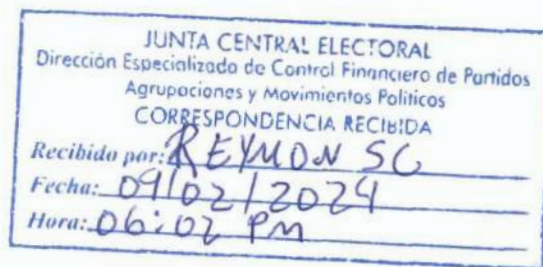 JUNTA CENTRAL ELECTORAL
Dirección Especializada de Control Financiero de Partidos
Agrupaciones y Movimientos Políticos
CORRESPONDENCIA RECIBIDA
Recibido por: REYMON SC
Fecha: 09/02/2024
Hora: 06:02 PM